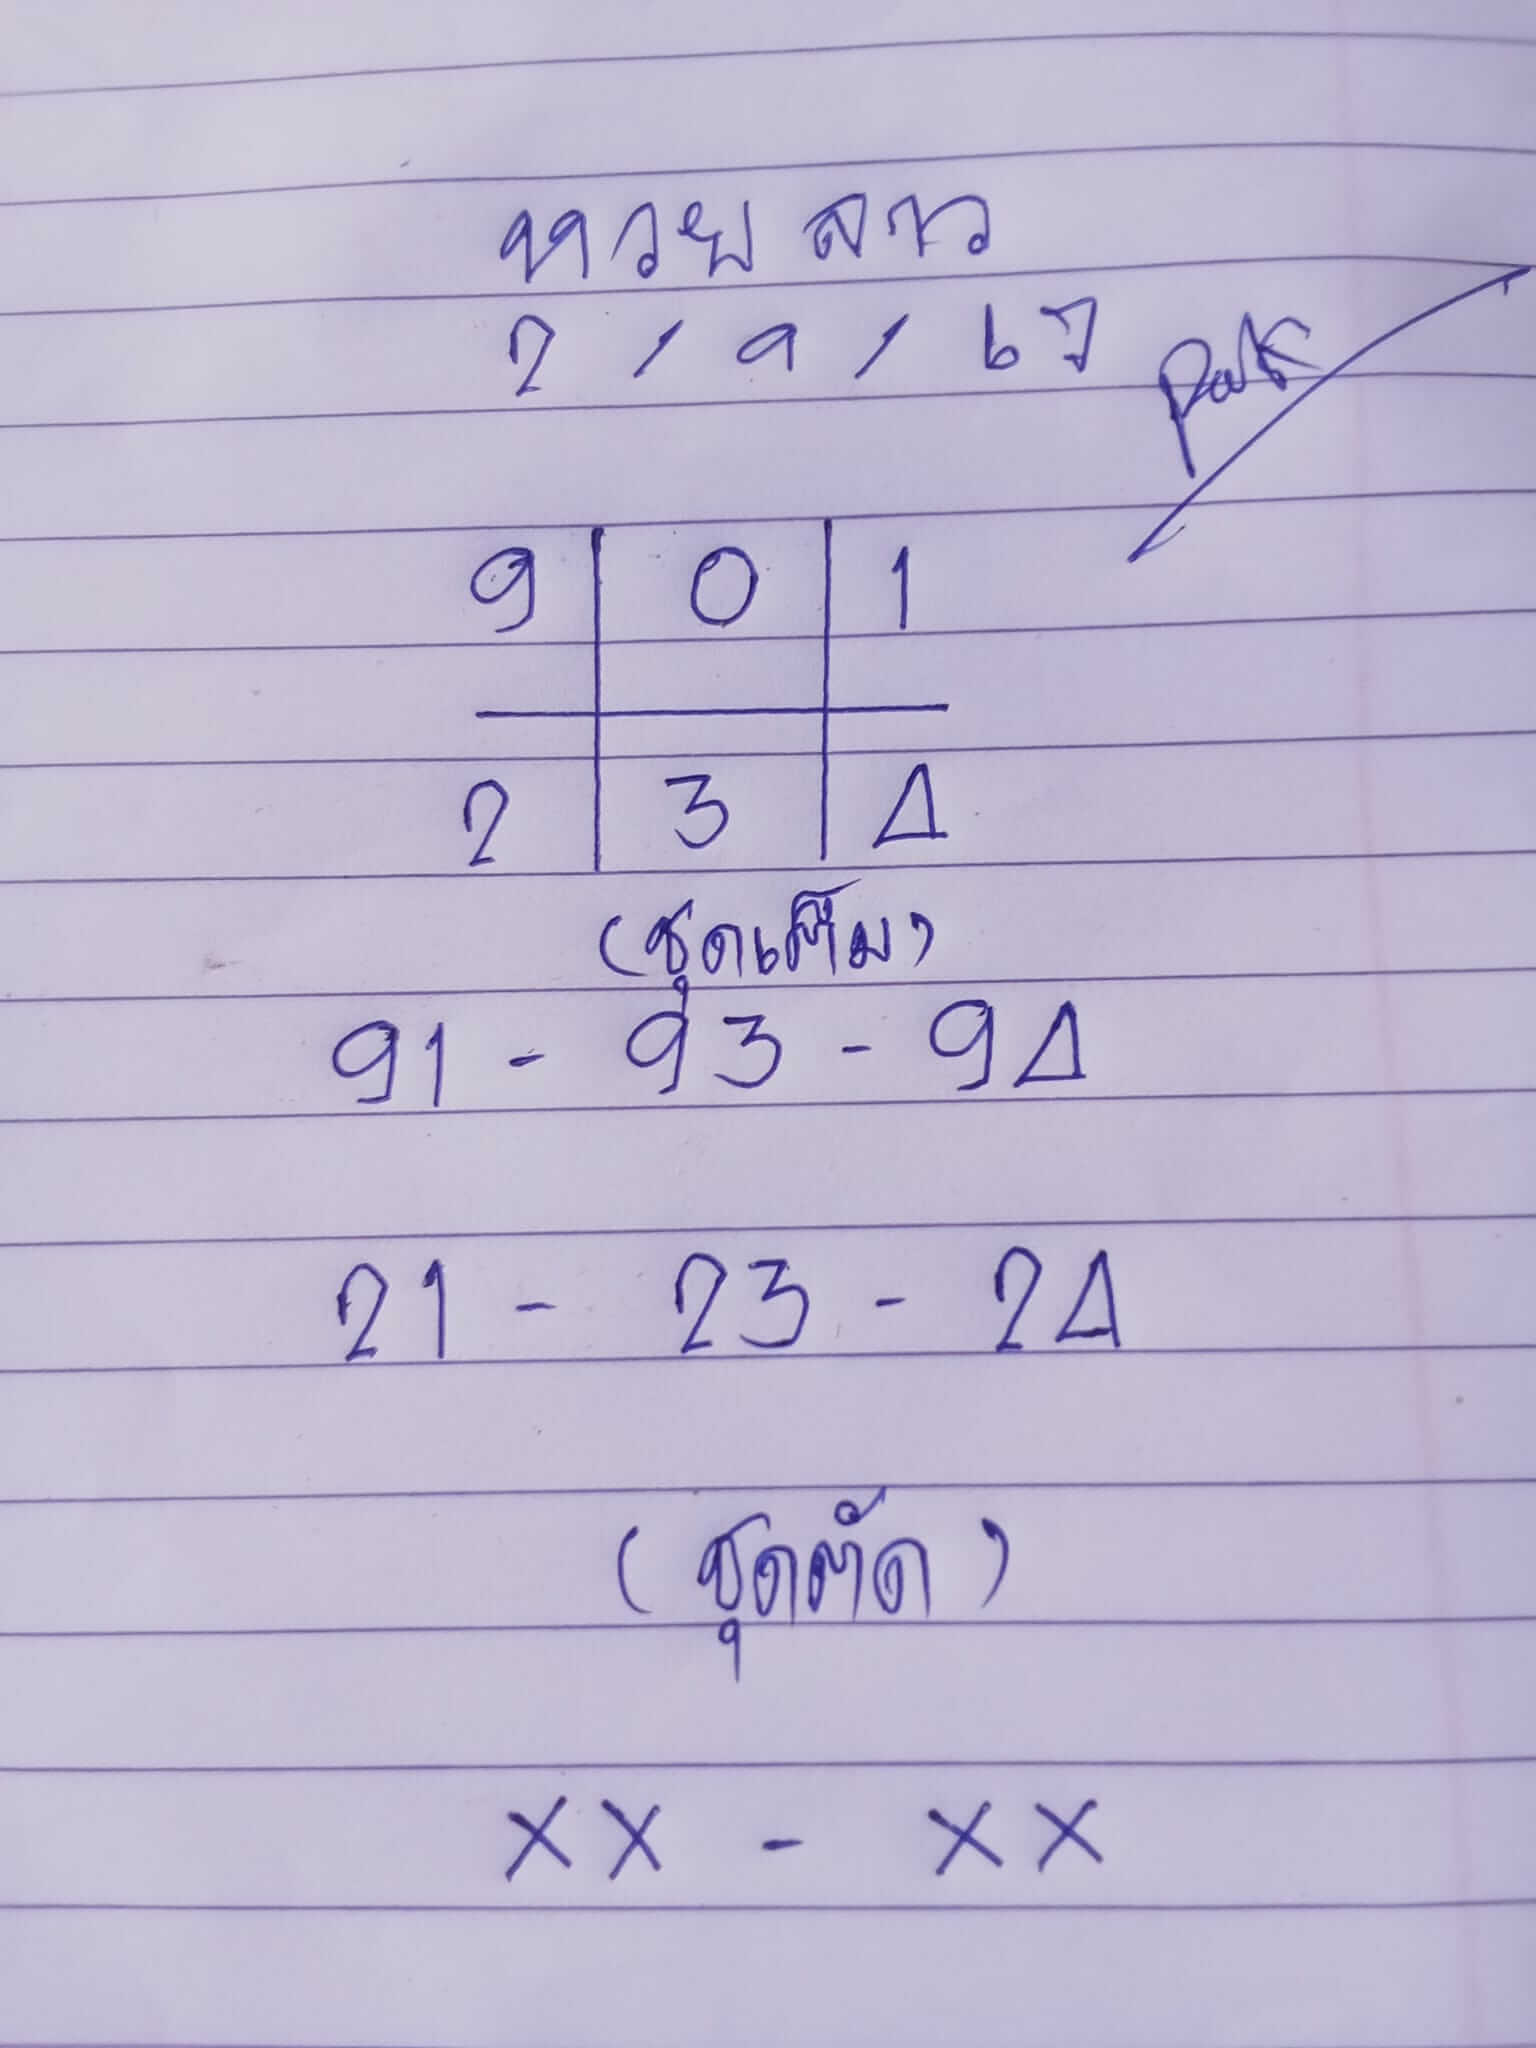 หวย ลาว
2 / 9 / 67
Park
9 | 0 | 1
2 | 3 | 4
(ชุดเต็ม)
91 - 93 - 94
21 - 23 - 24
(ชุดตัด)
XX - XX